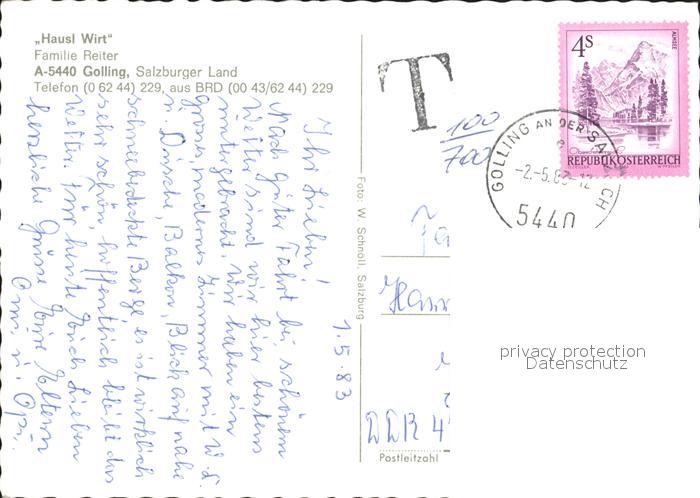 „Hausl Wirt"
Familie Reiter
A-5440 Golling, Salzburger Land
Telefon (0 62 44) 229, aus BRD (00 43/62 44) 229
T
100
700
4S
ALMSEE
REPUBLIK ÖSTERREICH
GOLLING AN DER SALZACH
-2.-5.83-12
5440
1.5.83
Ihr Lieben!
Nach guter Fahrt bei schönem
Wetter sind wir hier bestens
untergebracht. Wir haben ein
großes, modernes Zimmer mit W.C.
u. Dusche, Balkon, Blick auf nahe
schneebedeckte Berge es ist wirklich
sehr schön, hoffentlich bleibt das
Wetter. Für heute Euch Lieben
herzliche Grüsse Eure Eltern
Omi u. Opi.
Foto: W. Schnöll, Salzburg
Fa
Han
DDR 4
Postleitzahl
privacy protection
Datenschutz